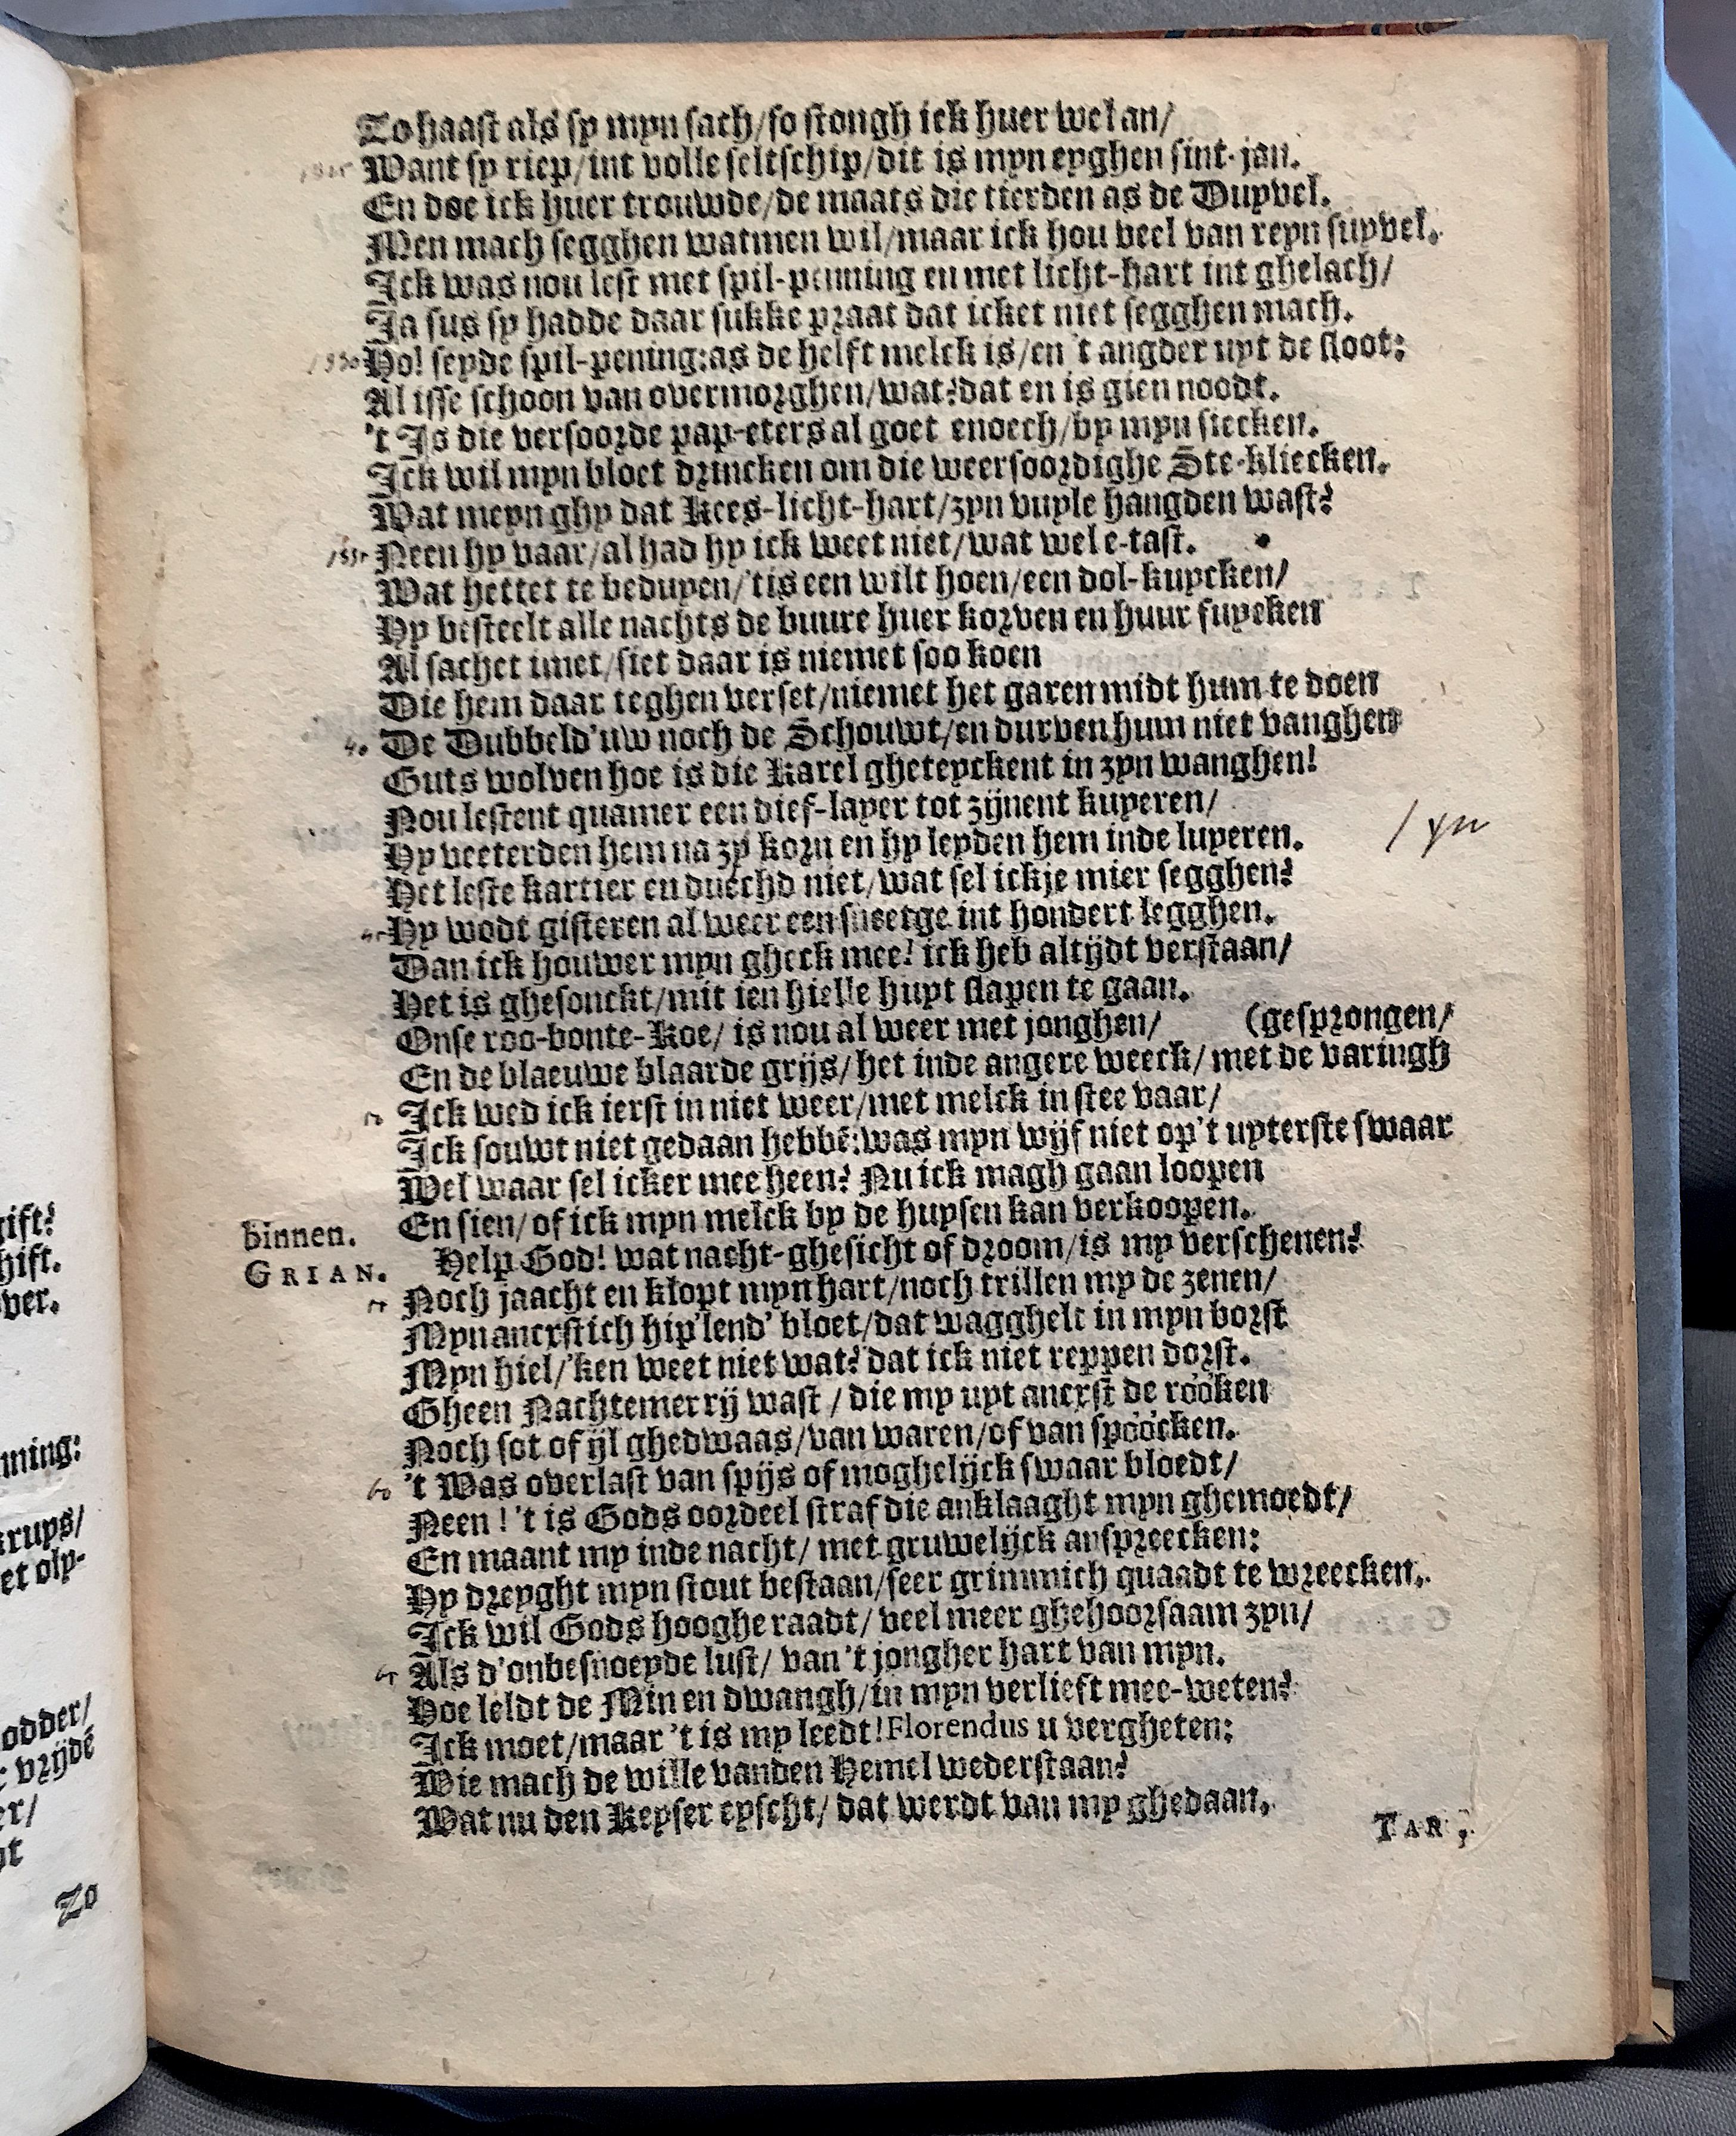 Zo haast als sy myn sach/so stongh ick huer wel an/
1525 Want sy riep/int volle seltschip/dit is myn eyghen sint-jan.
En doe ick huer trouwde/de maats die tierden as de Duyvel.
Men mach segghen watmen wil/maar ick hou veel van reyn suyvel.
Ick was nou lest met spil-penning en met licht-hart int ghelach/
Ja sus sy hadde daar sukke praat dat icket niet segghen mach.
1530 Ho! seyde spil-pening: as de helft melck is/en 't angder uyt de sloot:
Al isse schoon van overmorghen/wat? dat en is gien noodt.
't Is die versoorde pap-eters al goet enoech/by myn siecken.
Ick wil myn bloet drincken om die weersoordighe Ste-kliecken.
Wat meyn ghy dat Kees-licht-hart/zyn vuyle hangden wast?
1535 Neen hy vaar/al had hy ick weet niet/wat wel e-tast.
Wat hettet te beduyen/'tis een wilt hoen/een dol-kuycken/
Hy besteelt alle nachts de buure huer korven en huur fuycken
Al sachet imet/siet daar is niemet soo koen
Die hem daar teghen verset/niemet het garen midt hum te doen
40 De Dubbeld'uw noch de Schouwt/en durven hum niet vanghen
Guts wolven hoe is die Karel gheteyckent in zyn wanghen!
Nou lestent quamer een dief-layer tot zijnent kuyeren/
Hy veeterden hem na zy korn en hy leyden hem inde luyeren. / yn
Het leste kartier en duechd niet/wat sel ickje mier segghen?
45 Hy wodt gisteren al weer een sneetge int hondert legghen.
Dan ick houwer myn gheck mee! ick heb altijdt verstaan/
Het is ghesonckt/mit ien hielle huyt slapen te gaan.
Onse roo-bonte-Koe/ is nou al weer met jonghen/ (gesprongen/
En de blaeuwe blaarde grijs/het inde angere weeck/ met de varingh
50 Ick wed ick ierst in niet weer/met melck in stee vaar/
Ick souwt niet gedaan hebbē: was myn wijf niet op't uyterste swaar
Wel waar sel icker mee heen? Nu ick magh gaan loopen
En sien/ of ick myn melck by de huysen kan verkoopen.
binnen.
GRIAN. Help God! wat nacht-ghesicht of droom/is my verschenen?
55 Noch jaacht en klopt myn hart/noch trillen my de zenen/
Myn ancrstich hip'lend' bloet/dat wagghelt in myn borst
Myn hiel/'ken weet niet wat? dat ick niet reppen dorst.
Gheen Nachtemerrij wast / die my uyt ancxst de rooken
Noch sot of ijl ghedwaas/van waren/of van spoocken.
60 't Was overlast van spijs of moghelijck swaar bloedt/
Neen ! 't is Gods oordeel straf die anklaaght myn ghemoedt/
En maant my inde nacht/ met gruwelijck anspreecken:
Hy dreyght myn stout bestaan/seer grimmich quaadt te wreecken.
Ick wil Gods hooghe raadt/ veel meer ghehoorsaam zyn/
65 Als d'onbesnoeyde lust/ van 't jongher hart van myn.
Hoe leldt de Min en dwangh/in myn verlieft mee-weten?
Ick moet/maar 't is my leedt! Florendus u vergheten:
Wie mach de wille vanden Hemel wederstaan?
Wat nu den Keyser eyscht/ dat werdt van my ghedaan.
TAR,